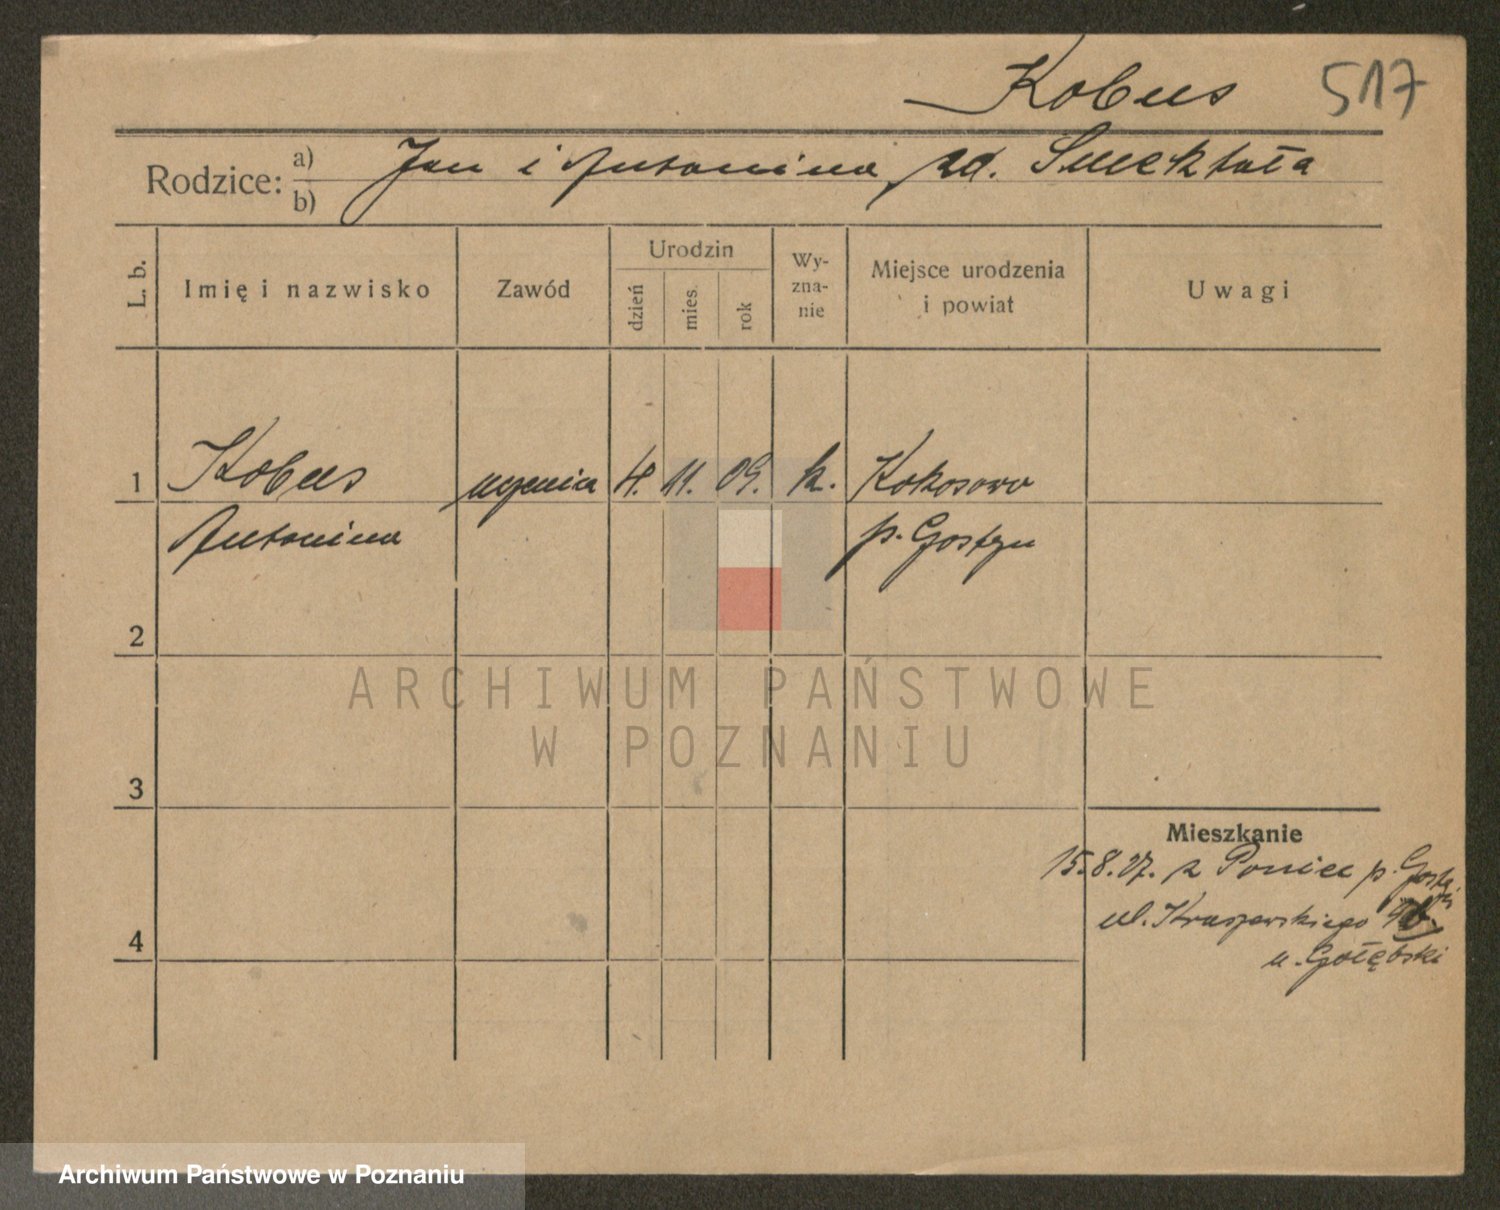 Kobus 517
Rodzice: a) Jan i Antonina, zd. Smektała
b)
L. b. Imię i nazwisko Zawód Urodzin dzień mies. rok Wy-zna-nie Miejsce urodzenia i powiat Uwagi
1 Kobus uczenica 4. 11. 09. k. Kokosowo
Antonina p. Gostyn
2
ARCHIWUM PAŃSTWOWE
W POZNANIU
3
Mieszkanie
15.8.27. z Poniec p. Gostyń
ul. Kraszewskiego
4
u. Gołębski
Archiwum Państwowe w Poznaniu